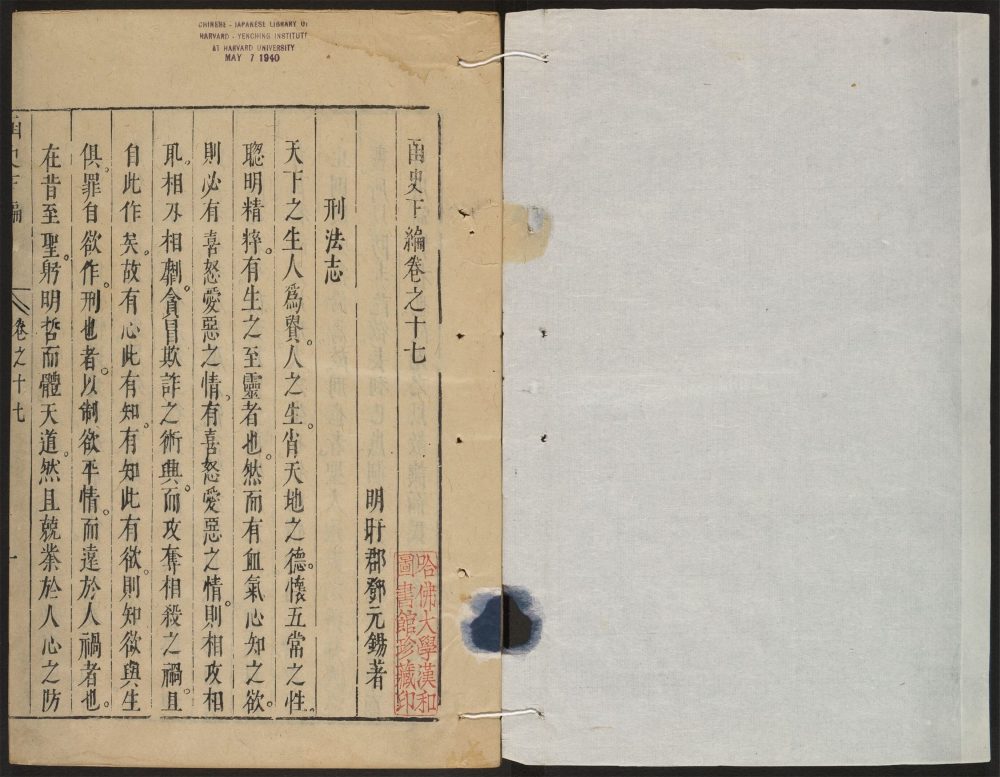 CHINESE - JAPANESE LIBRARY OF
HARVARD - YENCHING INSTITUTE
AT HARVARD UNIVERSITY
MAY 7 1940
函史下編卷之十七
明盱郡鄧元錫著
哈佛大學漢和
圖書館珍藏印
刑法志
天下之生人爲貴。人之生。肖天地之德。懷五常之性。
聰明精粹。有生之至靈者也。然而有血氣心知之欲。
則必有喜怒愛惡之情。有喜怒愛惡之情。則相攻相
取。相刃相劘。貪冒欺詐之術興。而攻奪相殺之禍。且
自此作矣。故有心此有知。有知此有欲。則知欲與生
俱。罪自欲作。刑也者。以制欲平情。而遠於人禍者也。
在昔至聖。躬明哲而體天道。然且兢業於人心之防
卷之十七
一